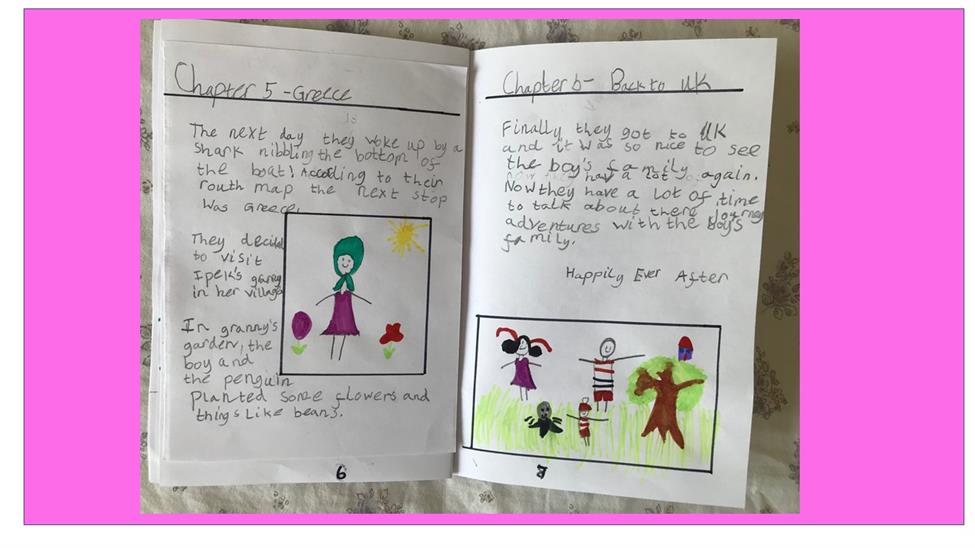 Chapter 5 - Greece
The next day they woke up by a
Shark nibbling the bottom of
the boat! According to their
routh map the next stop
was Greece.
They decided
to visit
Ipek's
in her village
In granny's
garden, the
boy and
the penguin
planted some flowers and
things like beans.
6
Chapter 6 - Back to UK
Finally they got to UK
and it was so nice to see
the boy's family again.
Now they have a lot of time
to talk about there journey
adventures with the boy's
family.
Happily Ever After